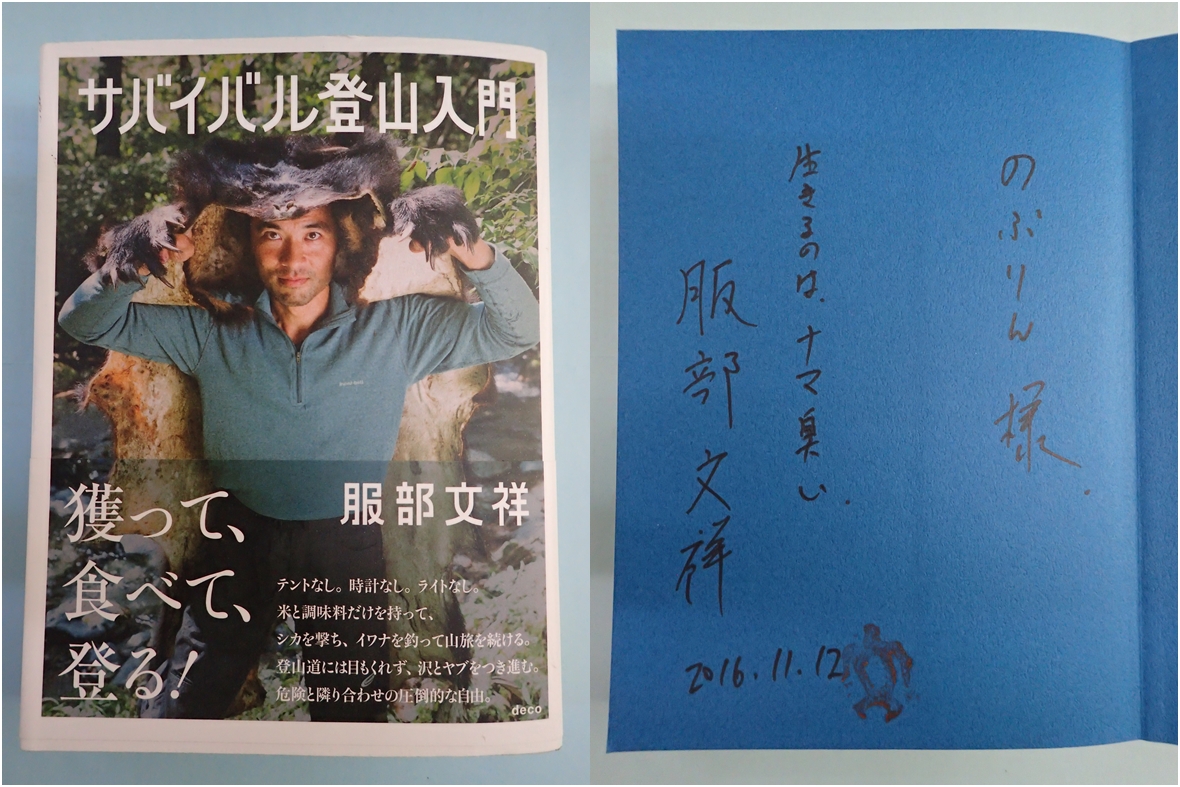 サバイバル登山入門
獲って、
食べて、
登る!
服部文祥
テントなし。時計なし。ライトなし。
米と調味料だけを持って、
シカを撃ち、イワナを釣って山旅を続ける。
登山道には目もくれず、沢とヤブをつき進む。
危険と隣り合わせの圧倒的な自由。
deco
のぶりん様.
生きるのは、ナマ臭い.
服部文祥
2016.11.12